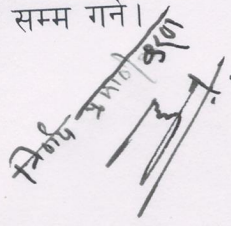 सम्म गर्ने।
निर्णय प्रमाणी करण